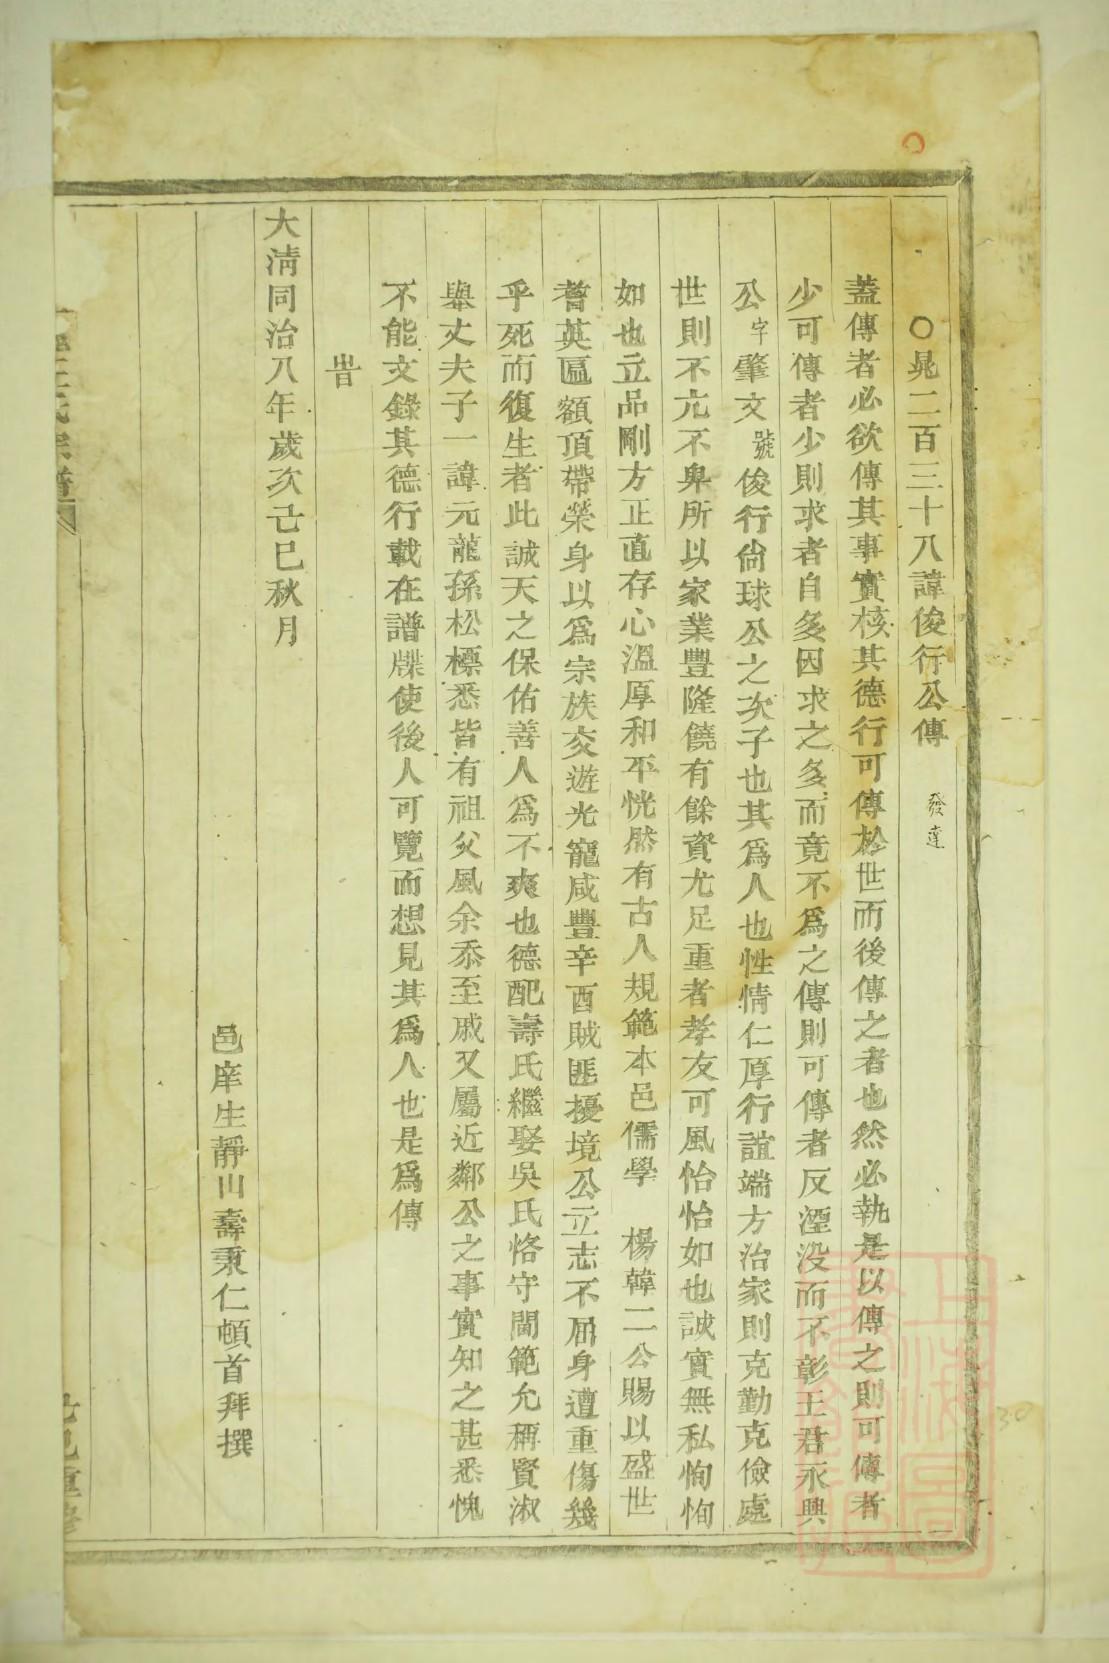 ○晁二百三十八諱俊行公傳 發達
蓋傳者必欲傳其事實核其德行可傳於世而後傳之者也然必執是以傳之則可傳者
少可傳者少則求者自多因求之多而竟不爲之傳則可傳者反湮没而不彰王君永興
公字肇文號俊行尙球公之次子也其爲人也性情仁厚行誼端方治家則克勤克儉處
世則不亢不卑所以家業豐隆饒有餘資尤足重者孝友可風怡怡如也誠實無私恂恂
如也立品剛方正直存心溫厚和平恍然有古人規範本邑儒學 楊韓二公賜以盛世
耆英匾額頂帶榮身以爲宗族交遊光寵咸豐辛酉賊匪擾境公立志不屈身遭重傷幾
乎死而復生者此誠天之保佑善人爲不爽也德配壽氏繼娶吳氏恪守閫範允稱賢淑
舉丈夫子一諱元龍孫松標悉皆有祖父風余忝至戚又屬近鄰公之事實知之甚悉愧
不能文錄其德行載在譜牒使後人可覽而想見其爲人也是爲傳
旹
大清同治八年歲次己巳秋月
邑庠生靜山壽秉仁頓首拜撰
氏宗譜